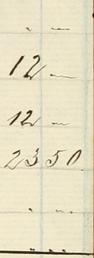 " "
12 —
12 —
23 50
" "
" "